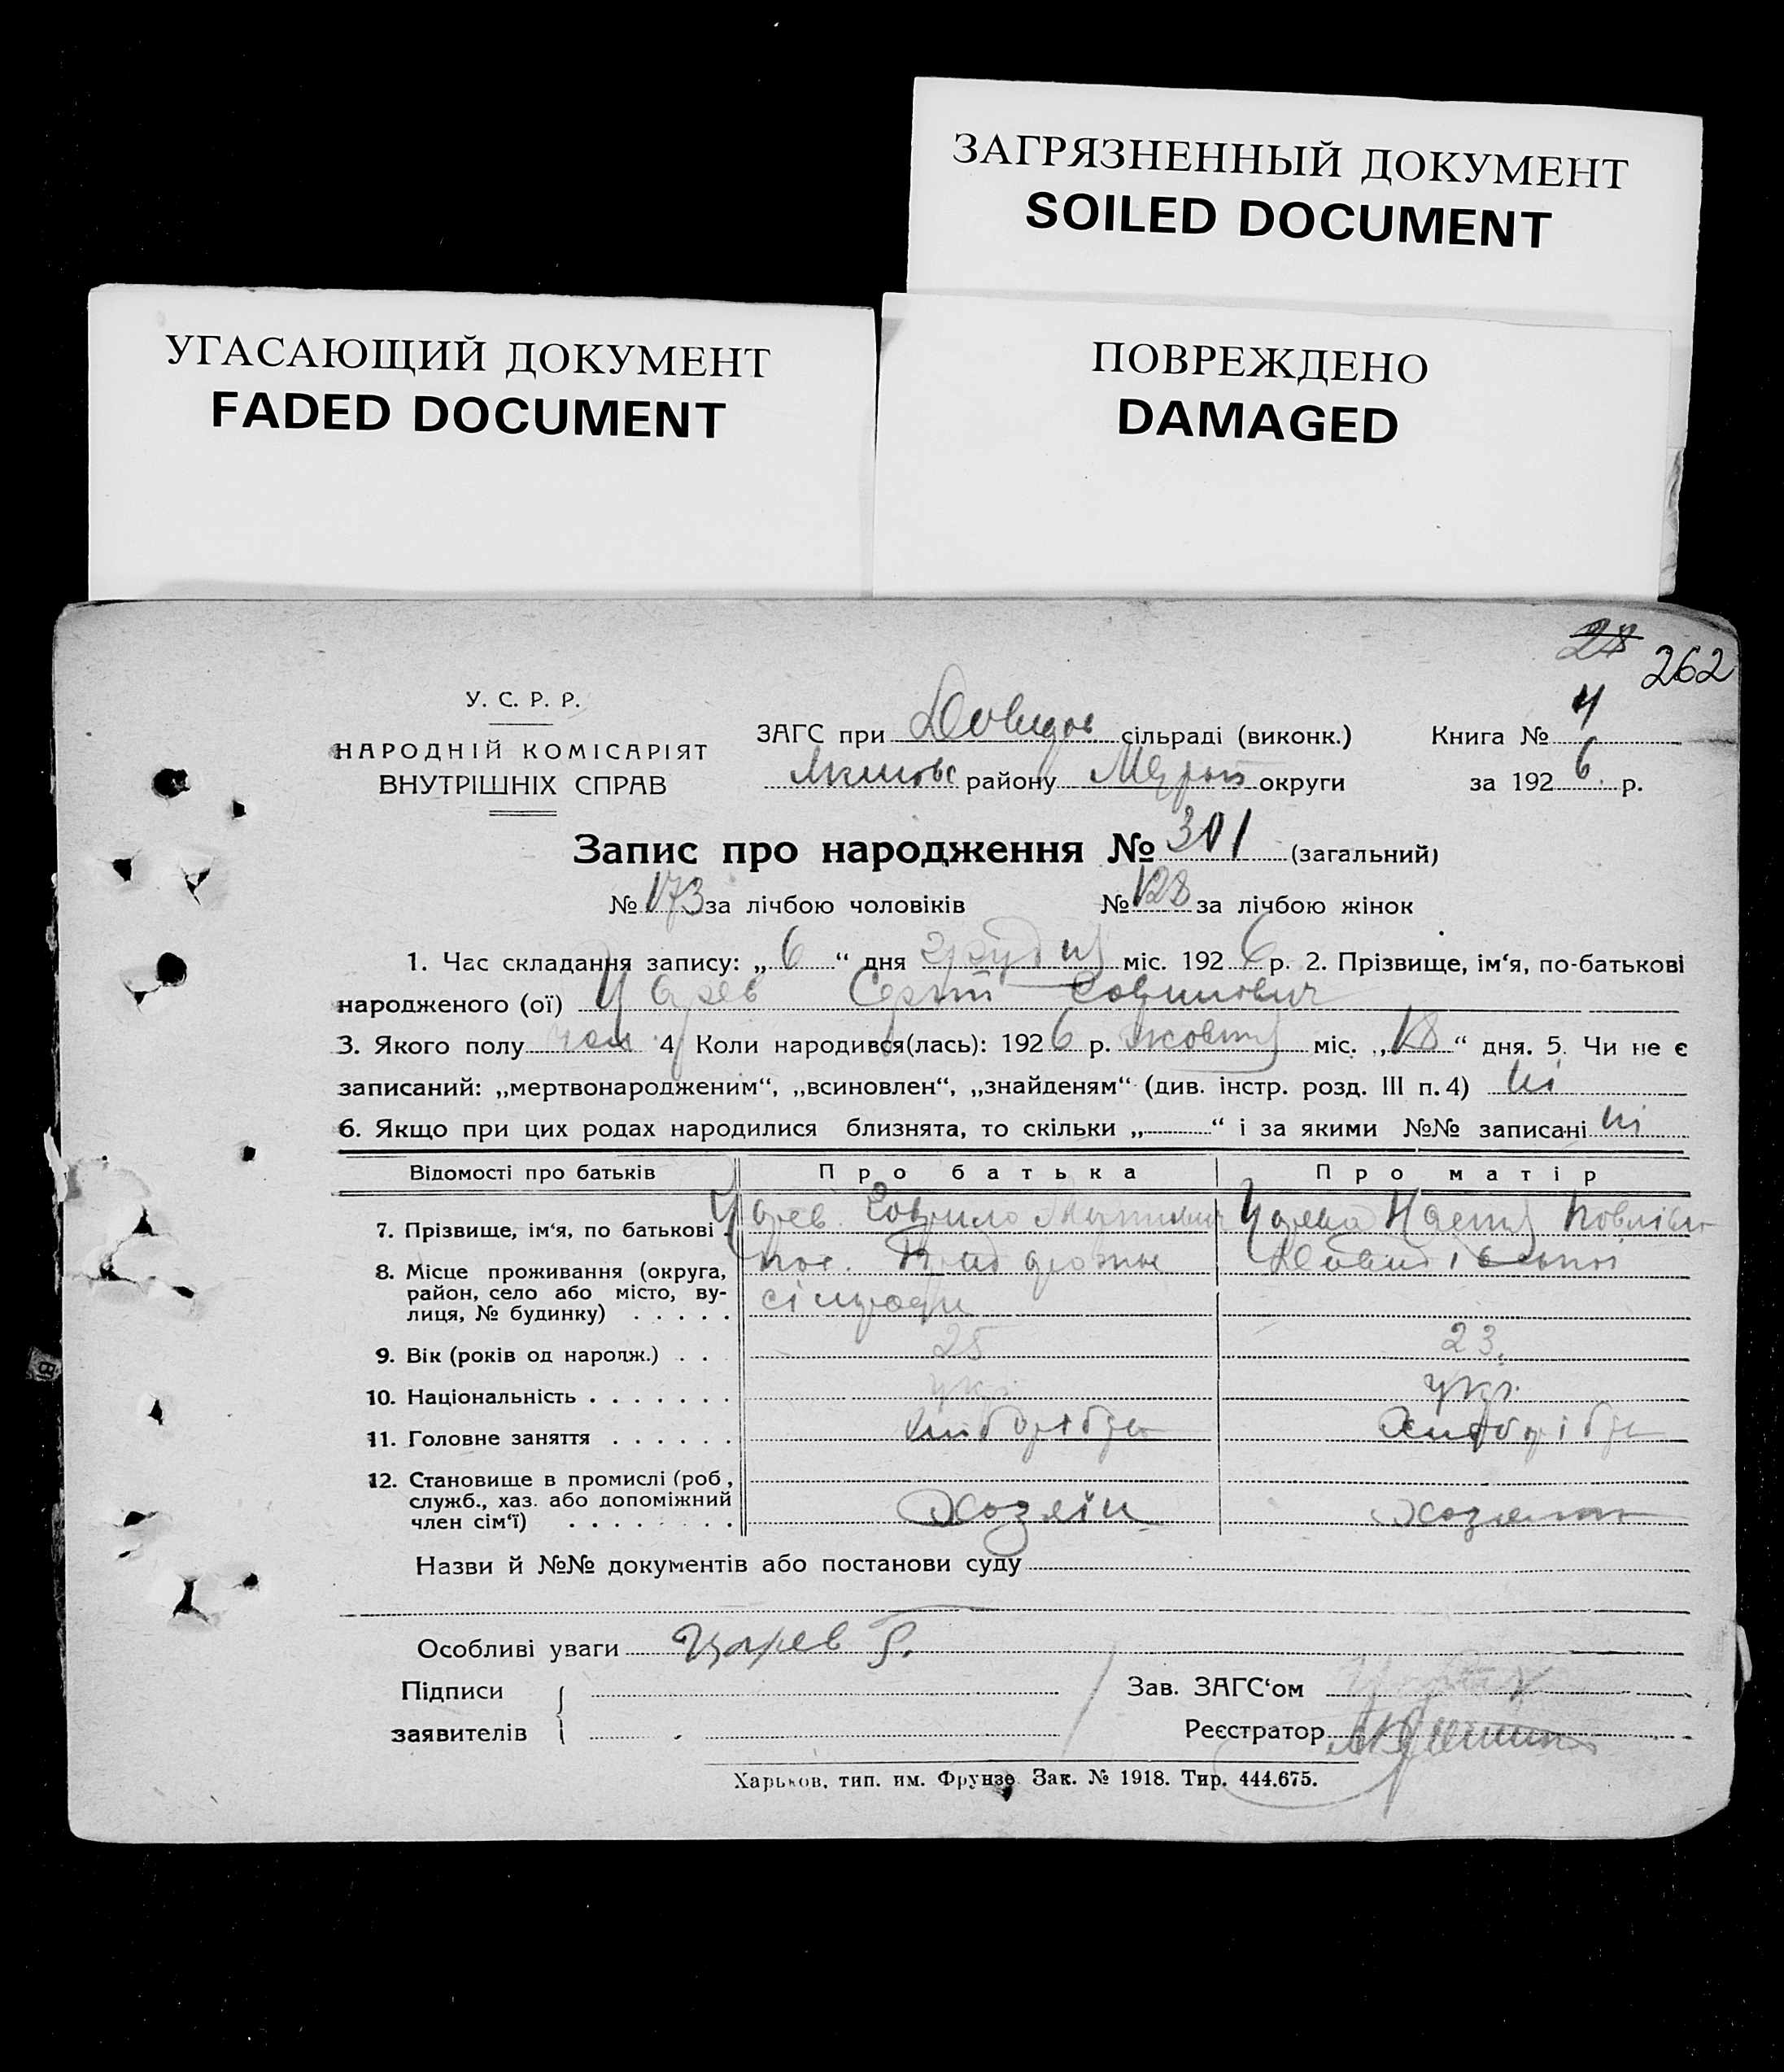 ЗАГРЯЗНЕННЫЙ ДОКУМЕНТ
SOILED DOCUMENT
УГАСАЮЩИЙ ДОКУМЕНТ
FADED DOCUMENT
ПОВРЕЖДЕНО
DAMAGED
28 262
У. С. Р. Р.
НАРОДНІЙ КОМІСАРІЯТ
ВНУТРІШНІХ СПРАВ
ЗАГС при Довидов сільраді (виконк.)
Якимовс району округи
Книга № 4
за 1926 р.
Запис про народження № 301 (загальний)
№ 173 за лічбою чоловіків № 128 за лічбою жінок
1. Час складання запису: „ 6 “ дня грудня міс. 1926 р. 2. Прізвище, ім‘я, по-батькові
народженого (ої) Царев
3. Якого полу чол 4 Коли народився(лась): 1926 р. жовтня міс. „ 18 “ дня. 5. Чи не є
записаний: „мертвонародженим“, „всиновлен“, „знайденям“ (див. інстр. розд. III п. 4) ні
6. Якщо при цих родах народилися близнята, то скільки „ “ і за якими №№ записані ні
Відомості про батьків Про батька Про матір
7. Прізвище, ім‘я, по батькові Царев Гаврило Царева Настя
8. Місце проживання (округа, пос.
район, село або місто, ву- сільради
лиця, № будинку) . . . . .
9. Вік (років од народж.) . . 25 23.
10. Національність . . . . . . . укр. укр.
11. Головне заняття . . . . . . хліборобство хліборобство
12. Становище в промислі (роб,
служб., хаз. або допоміжний
член сім‘ї) . . . . . . . . Хозяїн
Назви й №№ документів або постанови суду
Особливі уваги Царев Г.
Підписи Зав. ЗАГС‘ом
заявителів Реєстратор
Харьков, тип. им. Фрунзе Зак. № 1918. Тир. 444.675.